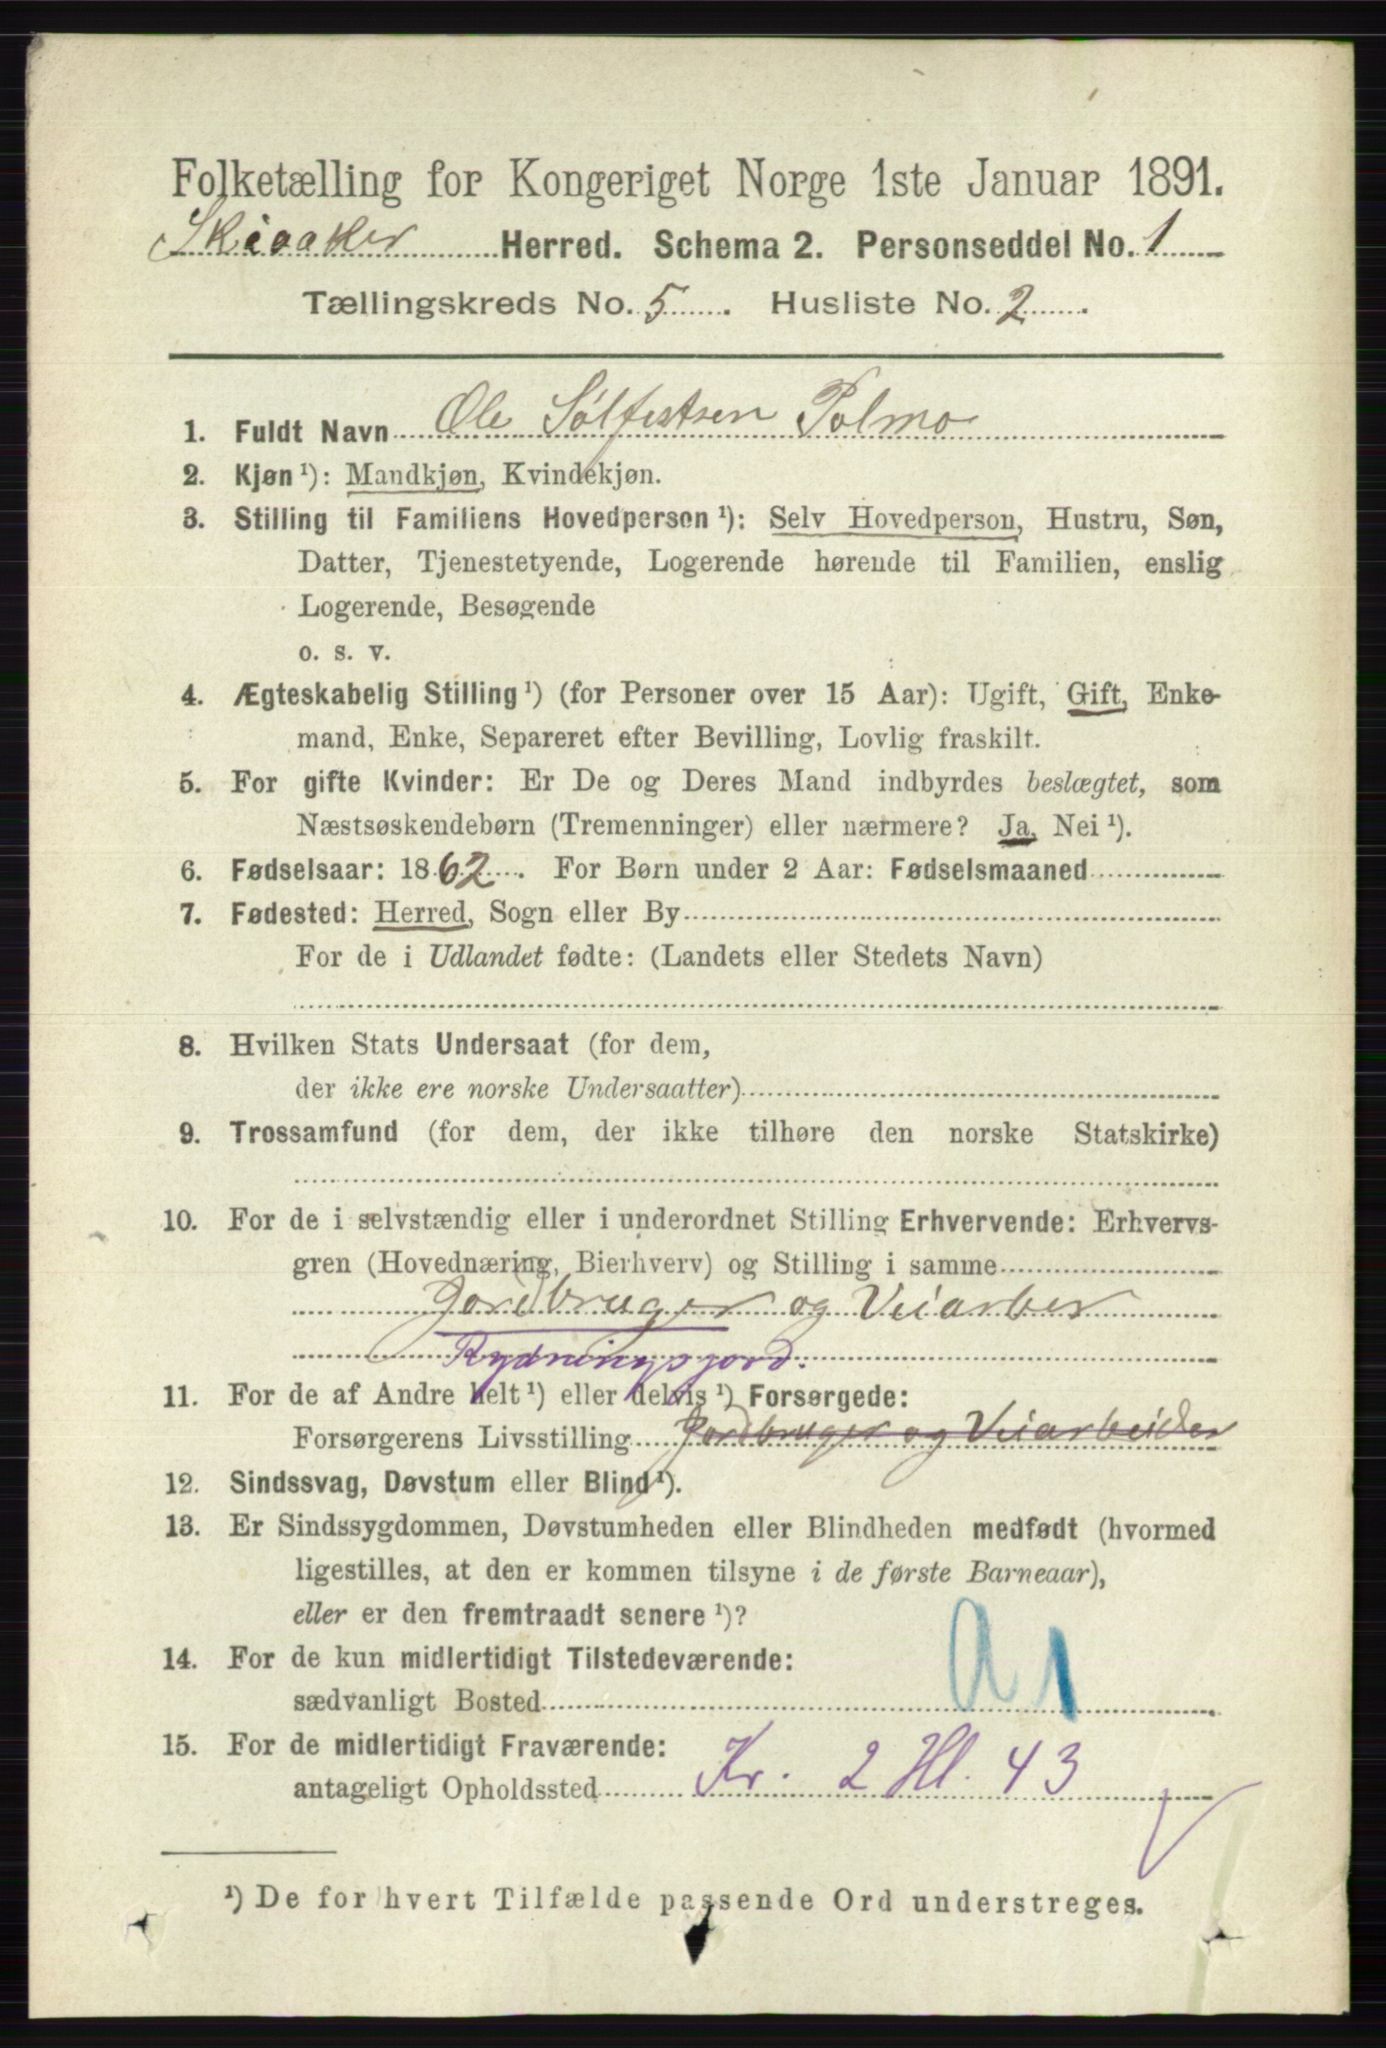 Folketælling for Kongeriget Norge 1ste Januar 1891.
Skiaaker Herred. Schema 2. Personseddel No. 1
Tællingskreds No. 5. Husliste No. 2.
1. Fuldt Navn Ole Sølfestsen Polmo
2. Kjøn ¹): Mandkjøn, Kvindekjøn.
3. Stilling til Familiens Hovedperson ¹): Selv Hovedperson, Hustru, Søn,
Datter, Tjenestetyende, Logerende hørende til Familien, enslig
Logerende, Besøgende
o. s. v.
4. Ægteskabelig Stilling ¹) (for Personer over 15 Aar): Ugift, Gift, Enke-
mand, Enke, Separeret efter Bevilling, Lovlig fraskilt.
5. For gifte Kvinder: Er De og Deres Mand indbyrdes beslægtet, som
Næstsøskendebørn (Tremenninger) eller nærmere? Ja, Nei ¹).
6. Fødselsaar: 1862. For Børn under 2 Aar: Fødselsmaaned
7. Fødested: Herred, Sogn eller By
For de i Udlandet fødte: (Landets eller Stedets Navn)
8. Hvilken Stats Undersaat (for dem,
der ikke ere norske Undersaatter)
9. Trossamfund (for dem, der ikke tilhøre den norske Statskirke)
10. For de i selvstændig eller i underordnet Stilling Erhvervende: Erhvervs-
gren (Hovednæring, Bierhverv) og Stilling i samme
Jordbruger og Veiarber
Rydningsjord.
11. For de af Andre helt ¹) eller delvis ¹) Forsørgede:
Forsørgerens Livsstilling Jordbruger og Veiarbeider
12. Sindssvag, Døvstum eller Blind ¹).
13. Er Sindssygdommen, Døvstumheden eller Blindheden medfødt (hvormed
ligestilles, at den er kommen tilsyne i de første Barneaar),
eller er den fremtraadt senere ¹)?
14. For de kun midlertidigt Tilstedeværende:
sædvanligt Bosted a1
15. For de midlertidigt Fraværende:
antageligt Opholdssted Kr. 2 Hl. 43
¹) De for hvert Tilfælde passende Ord understreges.